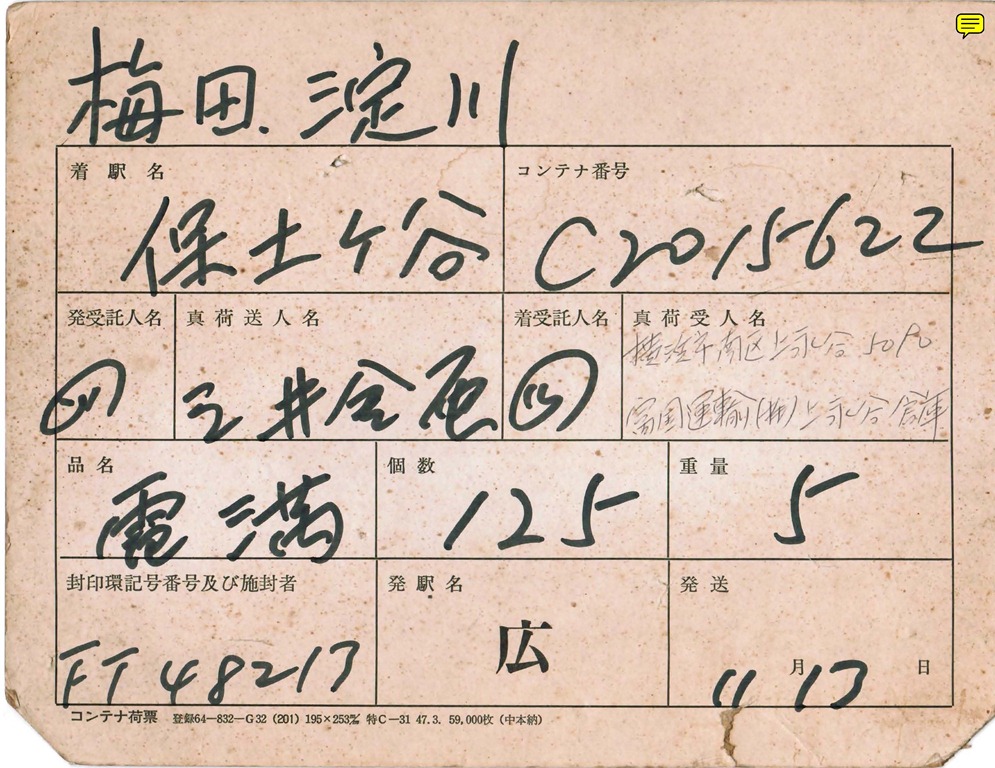 梅田.淀川
着駅名
コンテナ番号
保土ケ谷
C2015622
発受託人名
真荷送人名
着受託人名
真荷受人名
横浜市南区上永谷5090
三井金属
富国運輸(株)上永谷倉庫
品名
個数
重量
電満
125
5
封印環記号番号及び施封者
発駅名
発送
FT48213
広
11月13日
コンテナ荷票 登録64-832-G32(201) 195×253㎜ 特C-31 47.3. 59,000枚(中本納)